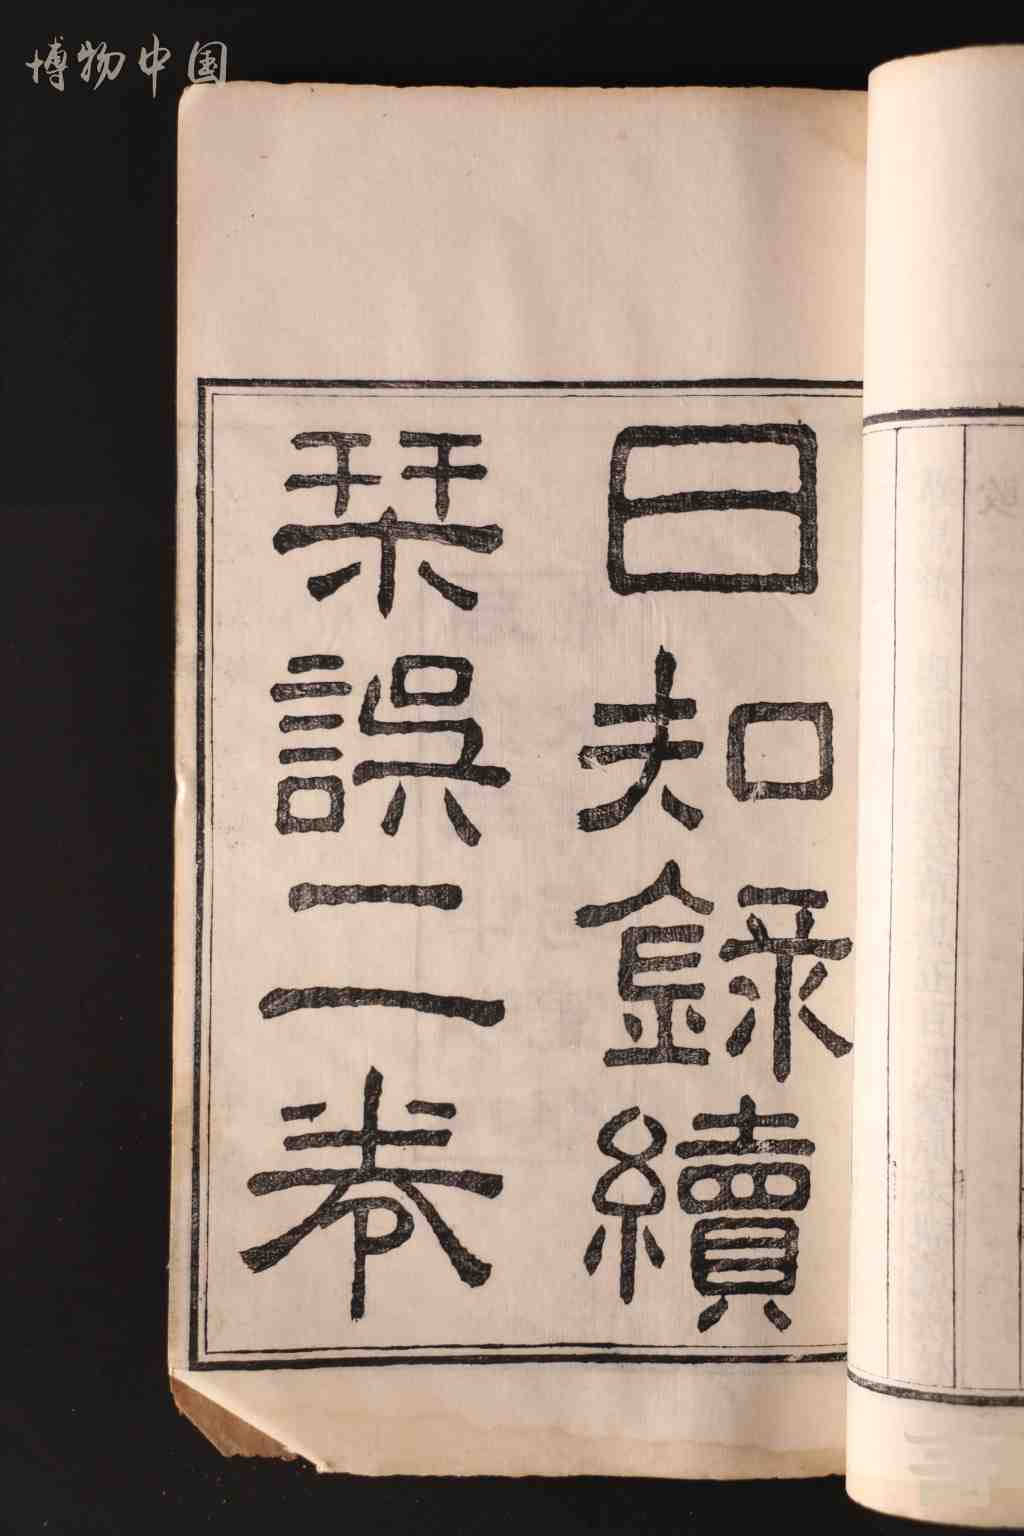 博物中国
日知錄續
栞誤二卷